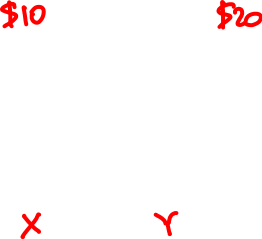 $10 $20
X Y